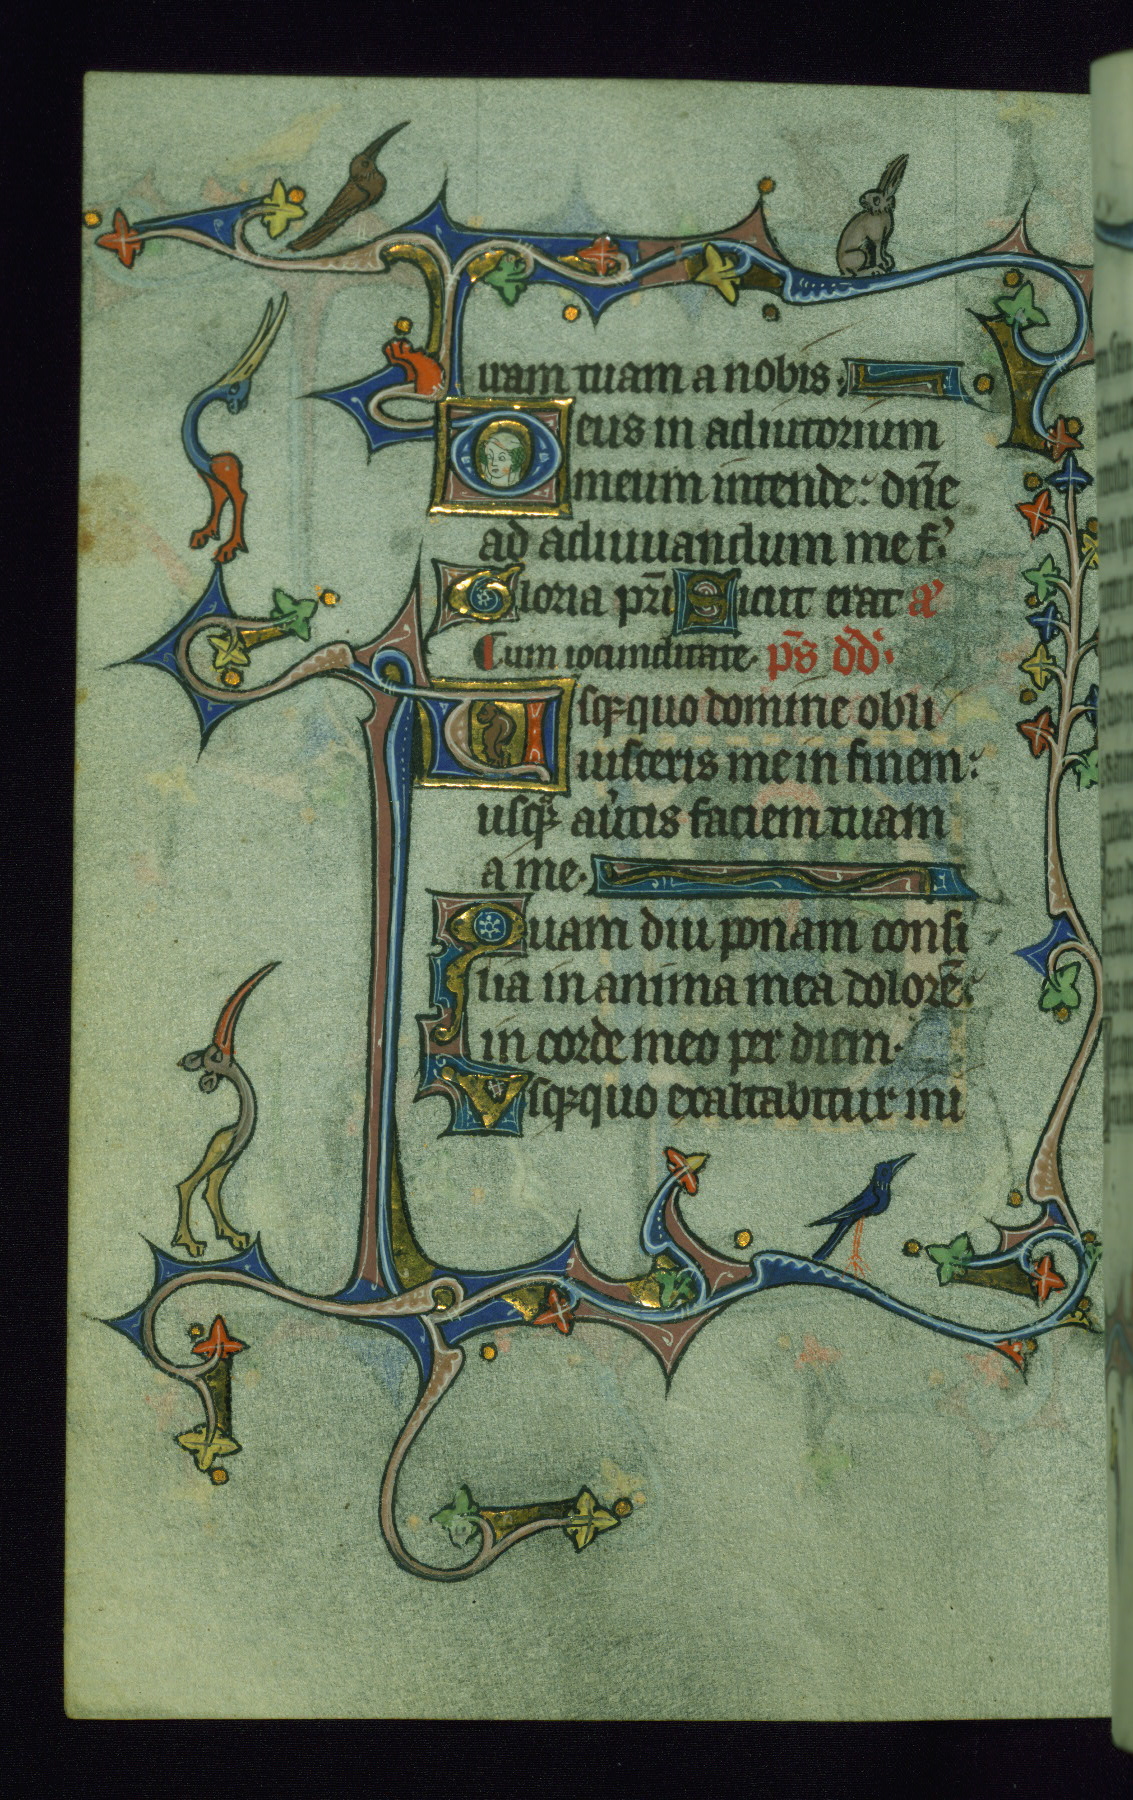 uram tuam a nobis.
Deus in adiutorium
meum intende: dñe
ad adiuuandum me f.
Gloria pri Sicut erat a͛
Cum iocunditate. p̄s dd̄.
Usqꝫquo domine obli
uisceris me in finem:
usqꝫ auͥtis faciem tuam
a me.
Quam diu ponam consi
lia in anima mea dolorē:
in corde meo per diem.
Vsqꝫquo exaltabitur ini